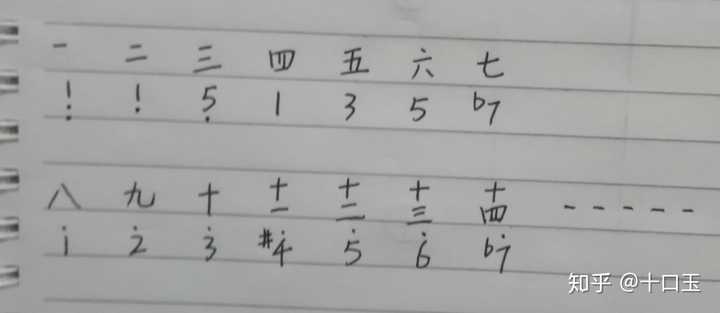 一 二 三 四 五 六 七
1̣̣ 1̣ 5̣ 1 3 5 b7
八 九 十 十一 十二 十三 十四 -----
1̇ 2̇ 3̇ #4̇ 5̇ 6̇ b7̇
知乎 @十口玉